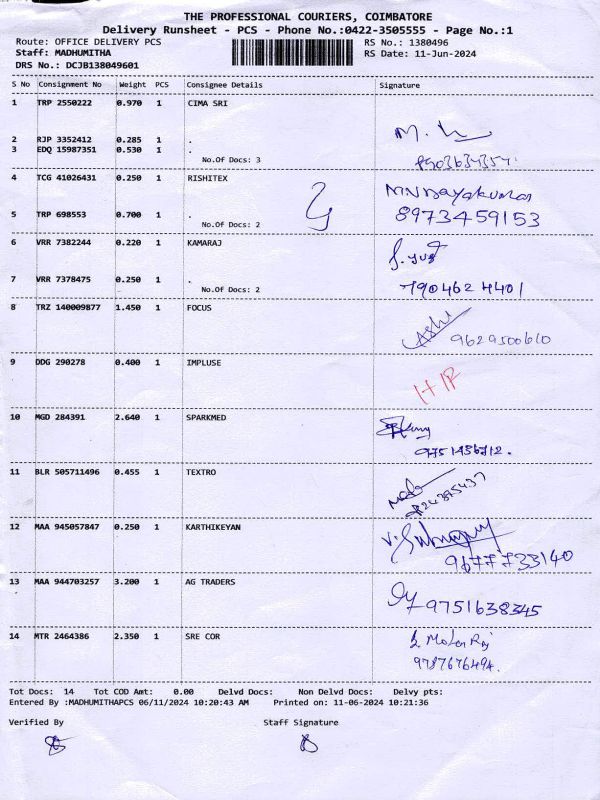 THE PROFESSIONAL COURIERS, COIMBATORE
Delivery Runsheet - PCS - Phone No.:0422-3505555 - Page No.:1
Route: OFFICE DELIVERY PCS RS No.: 1380496
Staff: MADHUMITHA RS Date: 11-Jun-2024
DRS No.: DCJB138049601
S No Consignment No Weight PCS Consignee Details Signature
1 TRP 2550222 0.970 1 CIMA SRI
2 RJP 3352412 0.285 1 .
3 EDQ 15987351 0.530 1 .
No.Of Docs: 3
4 TCG 41026431 0.250 1 RISHITEX
5 TRP 698553 0.700 1 .
8973459153
No.Of Docs: 2
6 VRR 7382244 0.220 1 KAMARAJ
7 VRR 7378475 0.250 1 .
7904624401
No.Of Docs: 2
8 TRZ 140009877 1.450 1 FOCUS
9629500610
9 DDG 290278 0.400 1 IMPLUSE
10 MGD 284391 2.640 1 SPARKMED
11 BLR 505711496 0.455 1 TEXTRO
12 MAA 945057847 0.250 1 KARTHIKEYAN
9677733140
13 MAA 944703257 3.200 1 AG TRADERS
9751638345
14 MTR 2464386 2.350 1 SRE COR
9787676494.
Tot Docs: 14 Tot COD Amt: 0.00 Delvd Docs: Non Delvd Docs: Delvy pts:
Entered By :MADHUMITHAPCS 06/11/2024 10:20:43 AM Printed on: 11-06-2024 10:21:36
Verified By Staff Signature